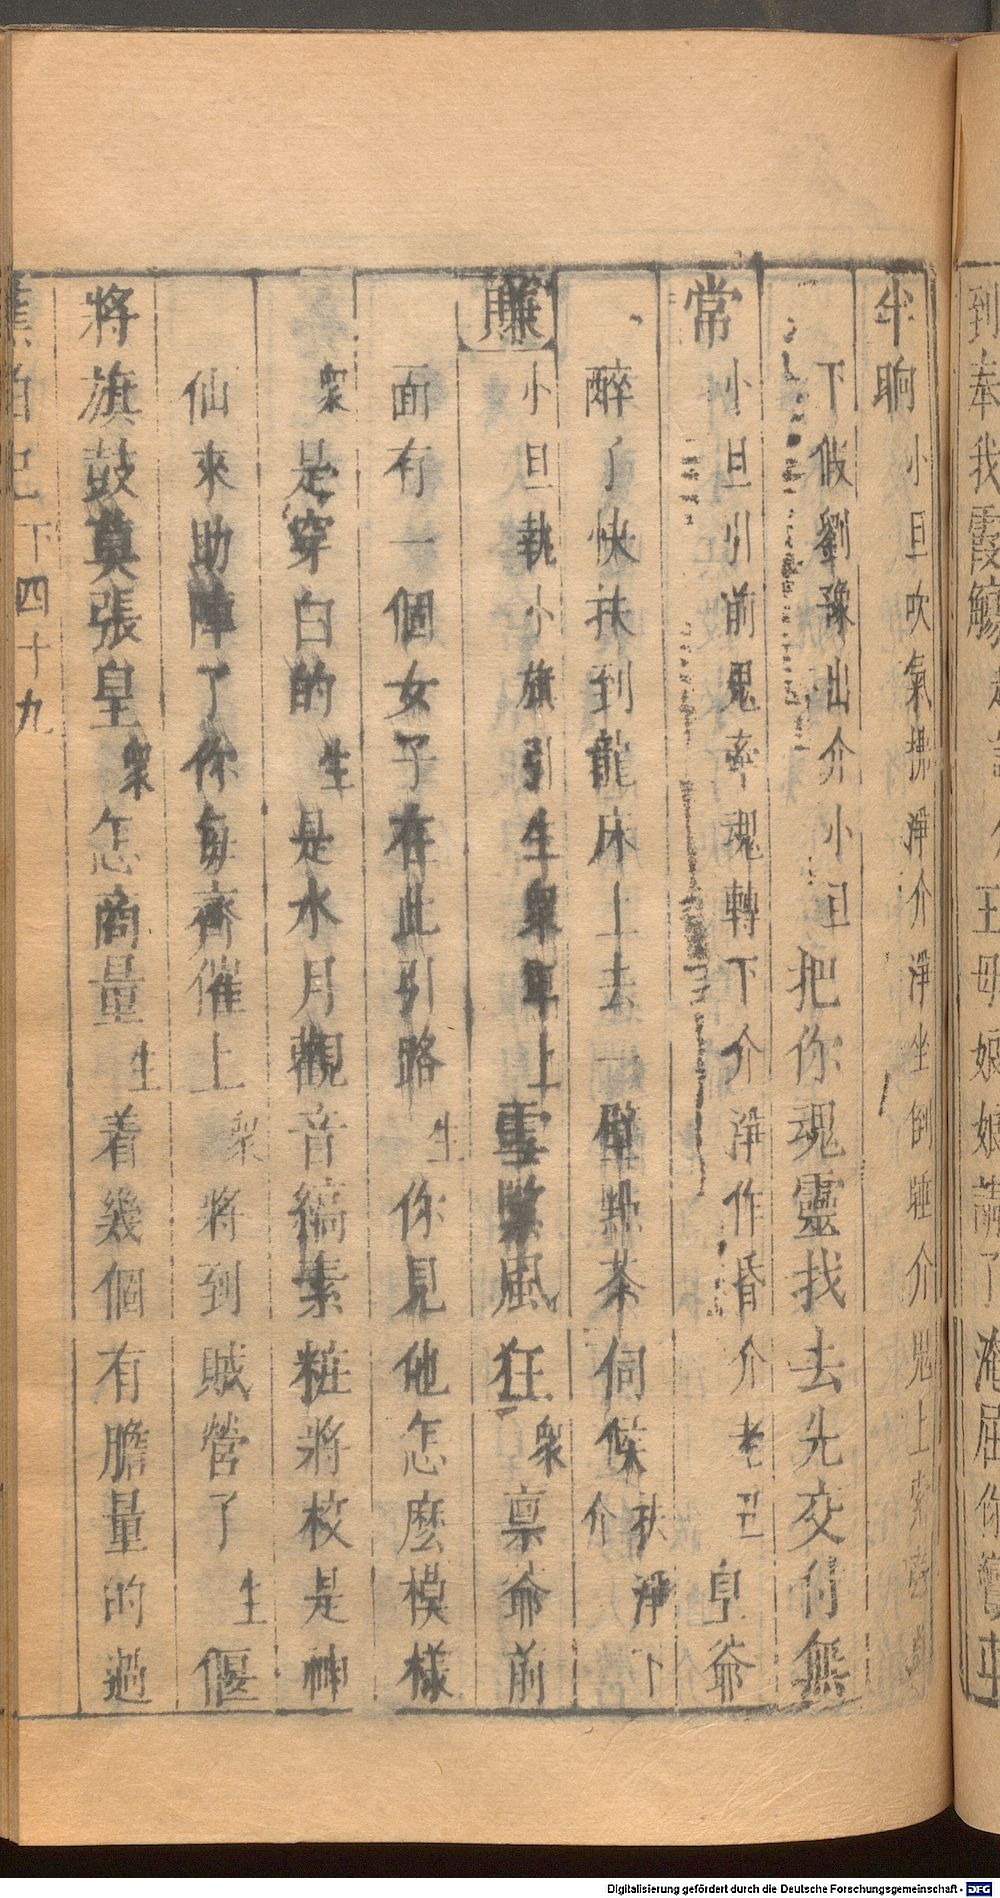 到奉我霞觴 王母娘娘請了淹屈你
半晌小旦吹氣拂淨介淨坐倒睡介鬼上
下假劉豫出介小旦把你魂靈找去先交付無
常小旦引前鬼牽魂轉下介淨作昏介老丑皇爺
醉了快扶到龍床上去一壁點茶伺候扶淨下介
賺小旦執小旗引生衆卒上雪緊風狂衆禀爺前
面有一個女子在此引路生你見他怎麽模樣
衆是穿白的生是水月觀音縞素粧將校是神
仙來助陣了你每齊催上衆將到賊營了生偃
將旗鼓莫張皇衆怎商量生着幾個有膽量的過
下四十九
Digitalisierung gefördert durch die Deutsche Forschungsgemeinschaft - DFG